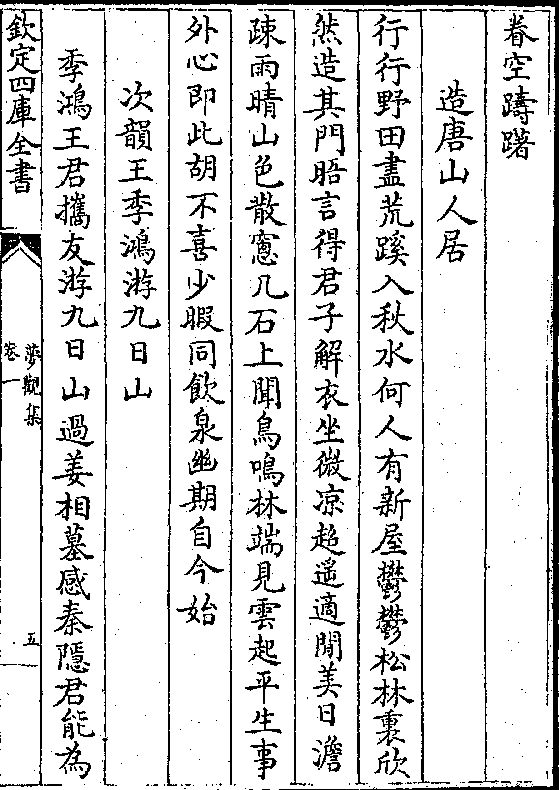 眷空躊躇
造唐山人居
行行野田盡荒蹊入秋水何人有新屋鬱鬱松林裏欣
然造其門晤言得君子解衣坐微凉超遥適閒美日澹
疎雨晴山色散窻几石上聞鳥鳴林端見雲起平生事
外心即此胡不喜少暇同飲泉幽期自今始
次韻王季鴻游九日山
季鴻王君攜友游九日山過姜相墓感秦隠君能為
欽定四庫全書
夢觀集
卷一
五